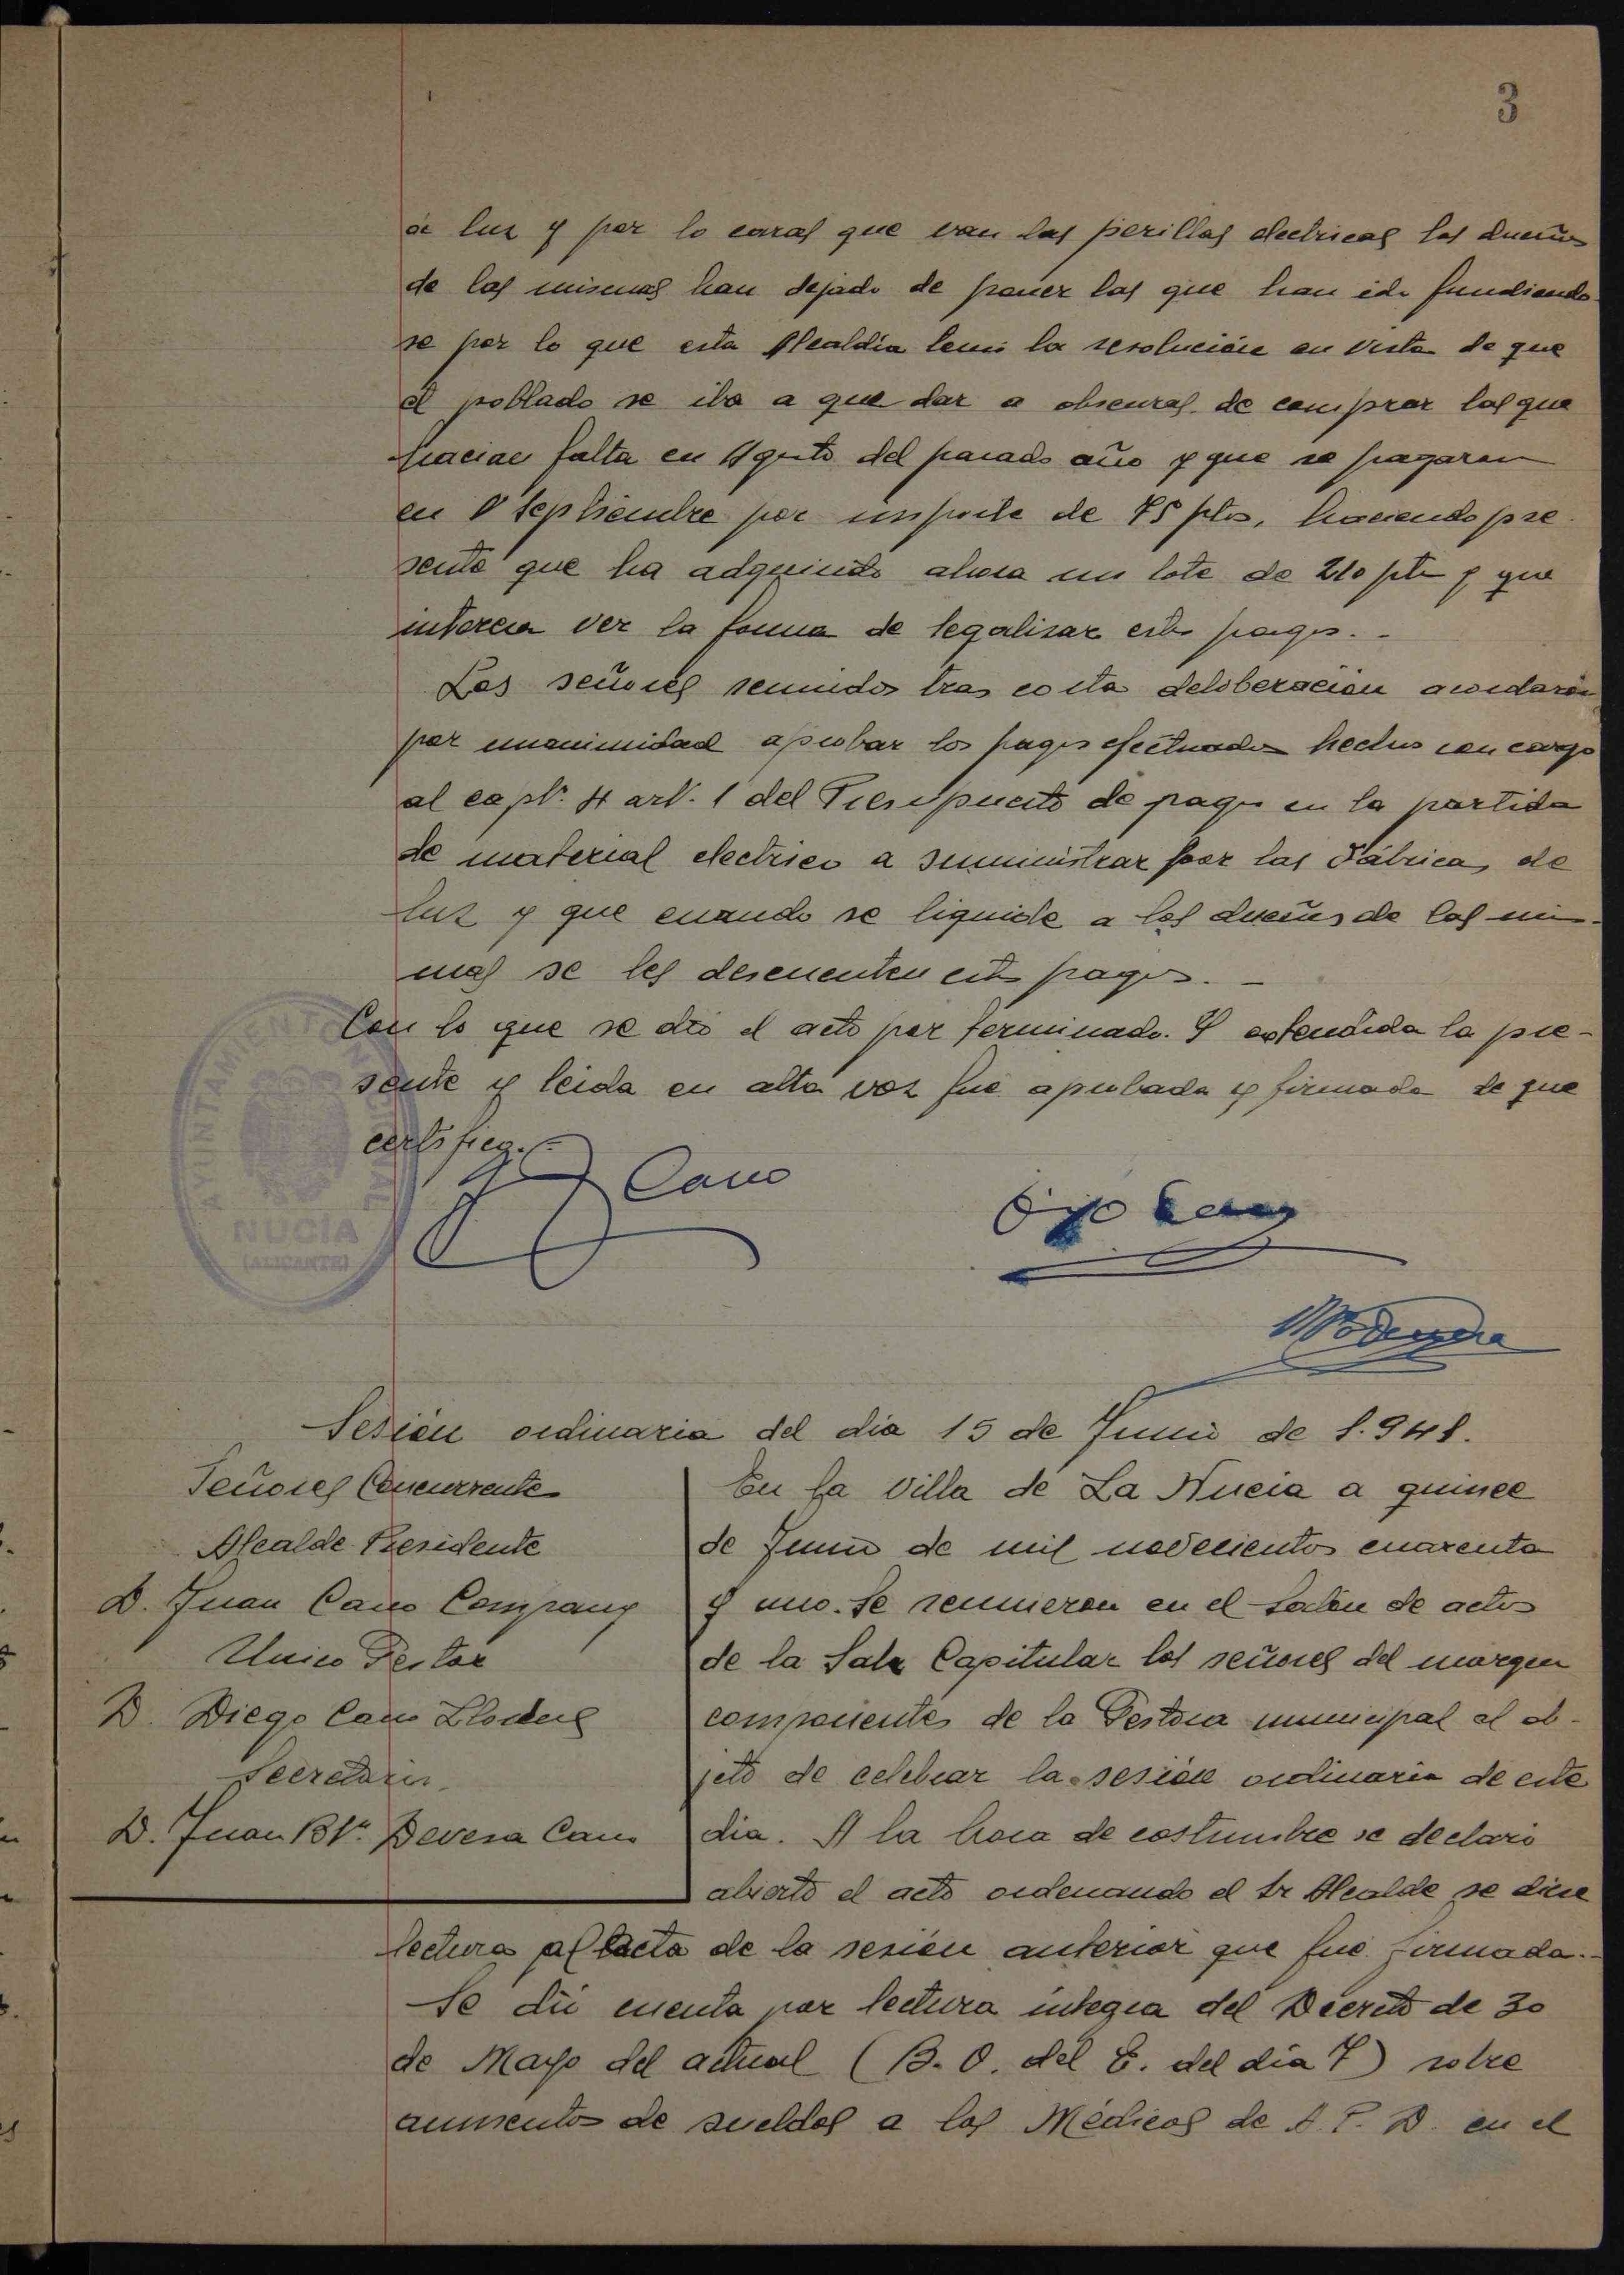 3
a luz y por lo caras que van las perillas electricas los dueños
de las mismas han dejado de poner las que han ido fundiendo
se por lo que esta Alcaldía tomó la resolución en vista de que
el poblado se iba a que dar a obscuras de comprar las que
hacian falta en Agosto del pasado año y que se pagaron
en Septiembre por importe de 75 ptas, haciendo pre
sente que ha adquirido ahora un lote de 210 pts y que
interesa ver la forma de legalizar estos pagos. -
Los señores reunidos tras corta deloberación acordaron
por unanimidad aprobar los pagos efectuados hechos con cargo
al capt. 4 art. 1 del Presupuesto de pagos en la partida
de material electrico a suministrar por las Fábricas de
luz y que cuando se liquide a los dueños de las mis-
mas se les descuenten estos pagos. -
Con lo que se dió el acto por terminado. Y extendida la pre-
sente y leida en alta voz fué aprobada y firmada de que
certifico. -
Cano
AYUNTAMIENTO NACIONAL
NUCÍA
(ALICANTE)
Sesión ordinaria del día 15 de Junio de 1.941.
Señores Concurrentes
Alcalde Presidente
D. Juan Cano Company
Unico Gestor
D. Diego Cano Llorens
Secretario
D. Juan Bta. Devesa Cano
En la villa de La Nucia a quince
de Junio de mil novecientos cuarenta
y uno. Se reunieron en el salón de actos
de la Sala Capitular los señores del margen
componentes de la Gestora municipal al ob-
jeto de celebrar la sesión ordinaria de este
dia. A la hora de costumbre se declaró
abierto el acto ordenando el Sr Alcalde se diese
lectura al acta de la sesión anterior que fué firmada. -
Se dió cuenta por lectura integra del Decreto de 30
de Mayo del actual (B. O. del E. del día 7) sobre
aumentos de sueldos a los Médicos de A. P. D. en el